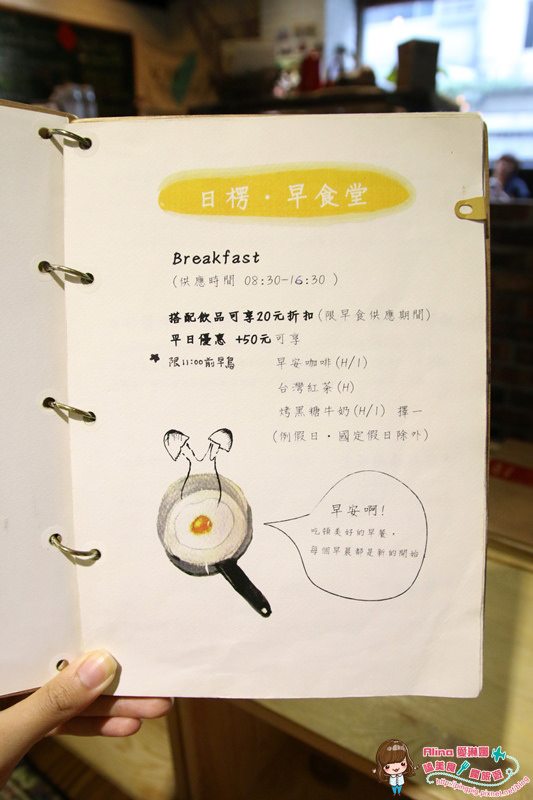 日楞·早食堂
Breakfast
(供應時間 08:30-16:30 )
搭配飲品可享20元折扣(限早食供應期間)
平日優惠 +50元可享
★限11:00前早鳥 早安咖啡(H/I)
台灣紅茶(H)
烤黑糖牛奶(H/I) 擇一
(例假日·國定假日除外)
早安啊!
吃頓美好的早餐,
每個早晨都是新的開始
Alina 愛琳團
嗑美食 瘋旅遊